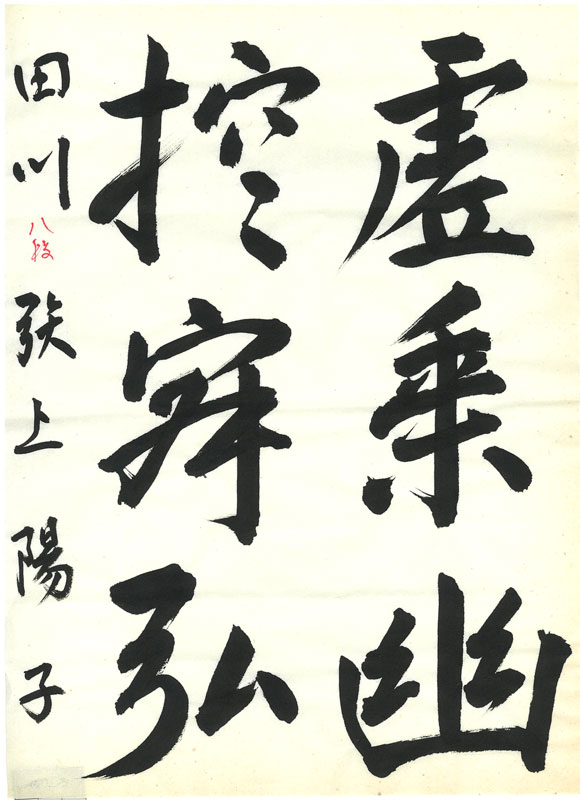 虚乗幽
控寂弘
田川 八段 上陽子